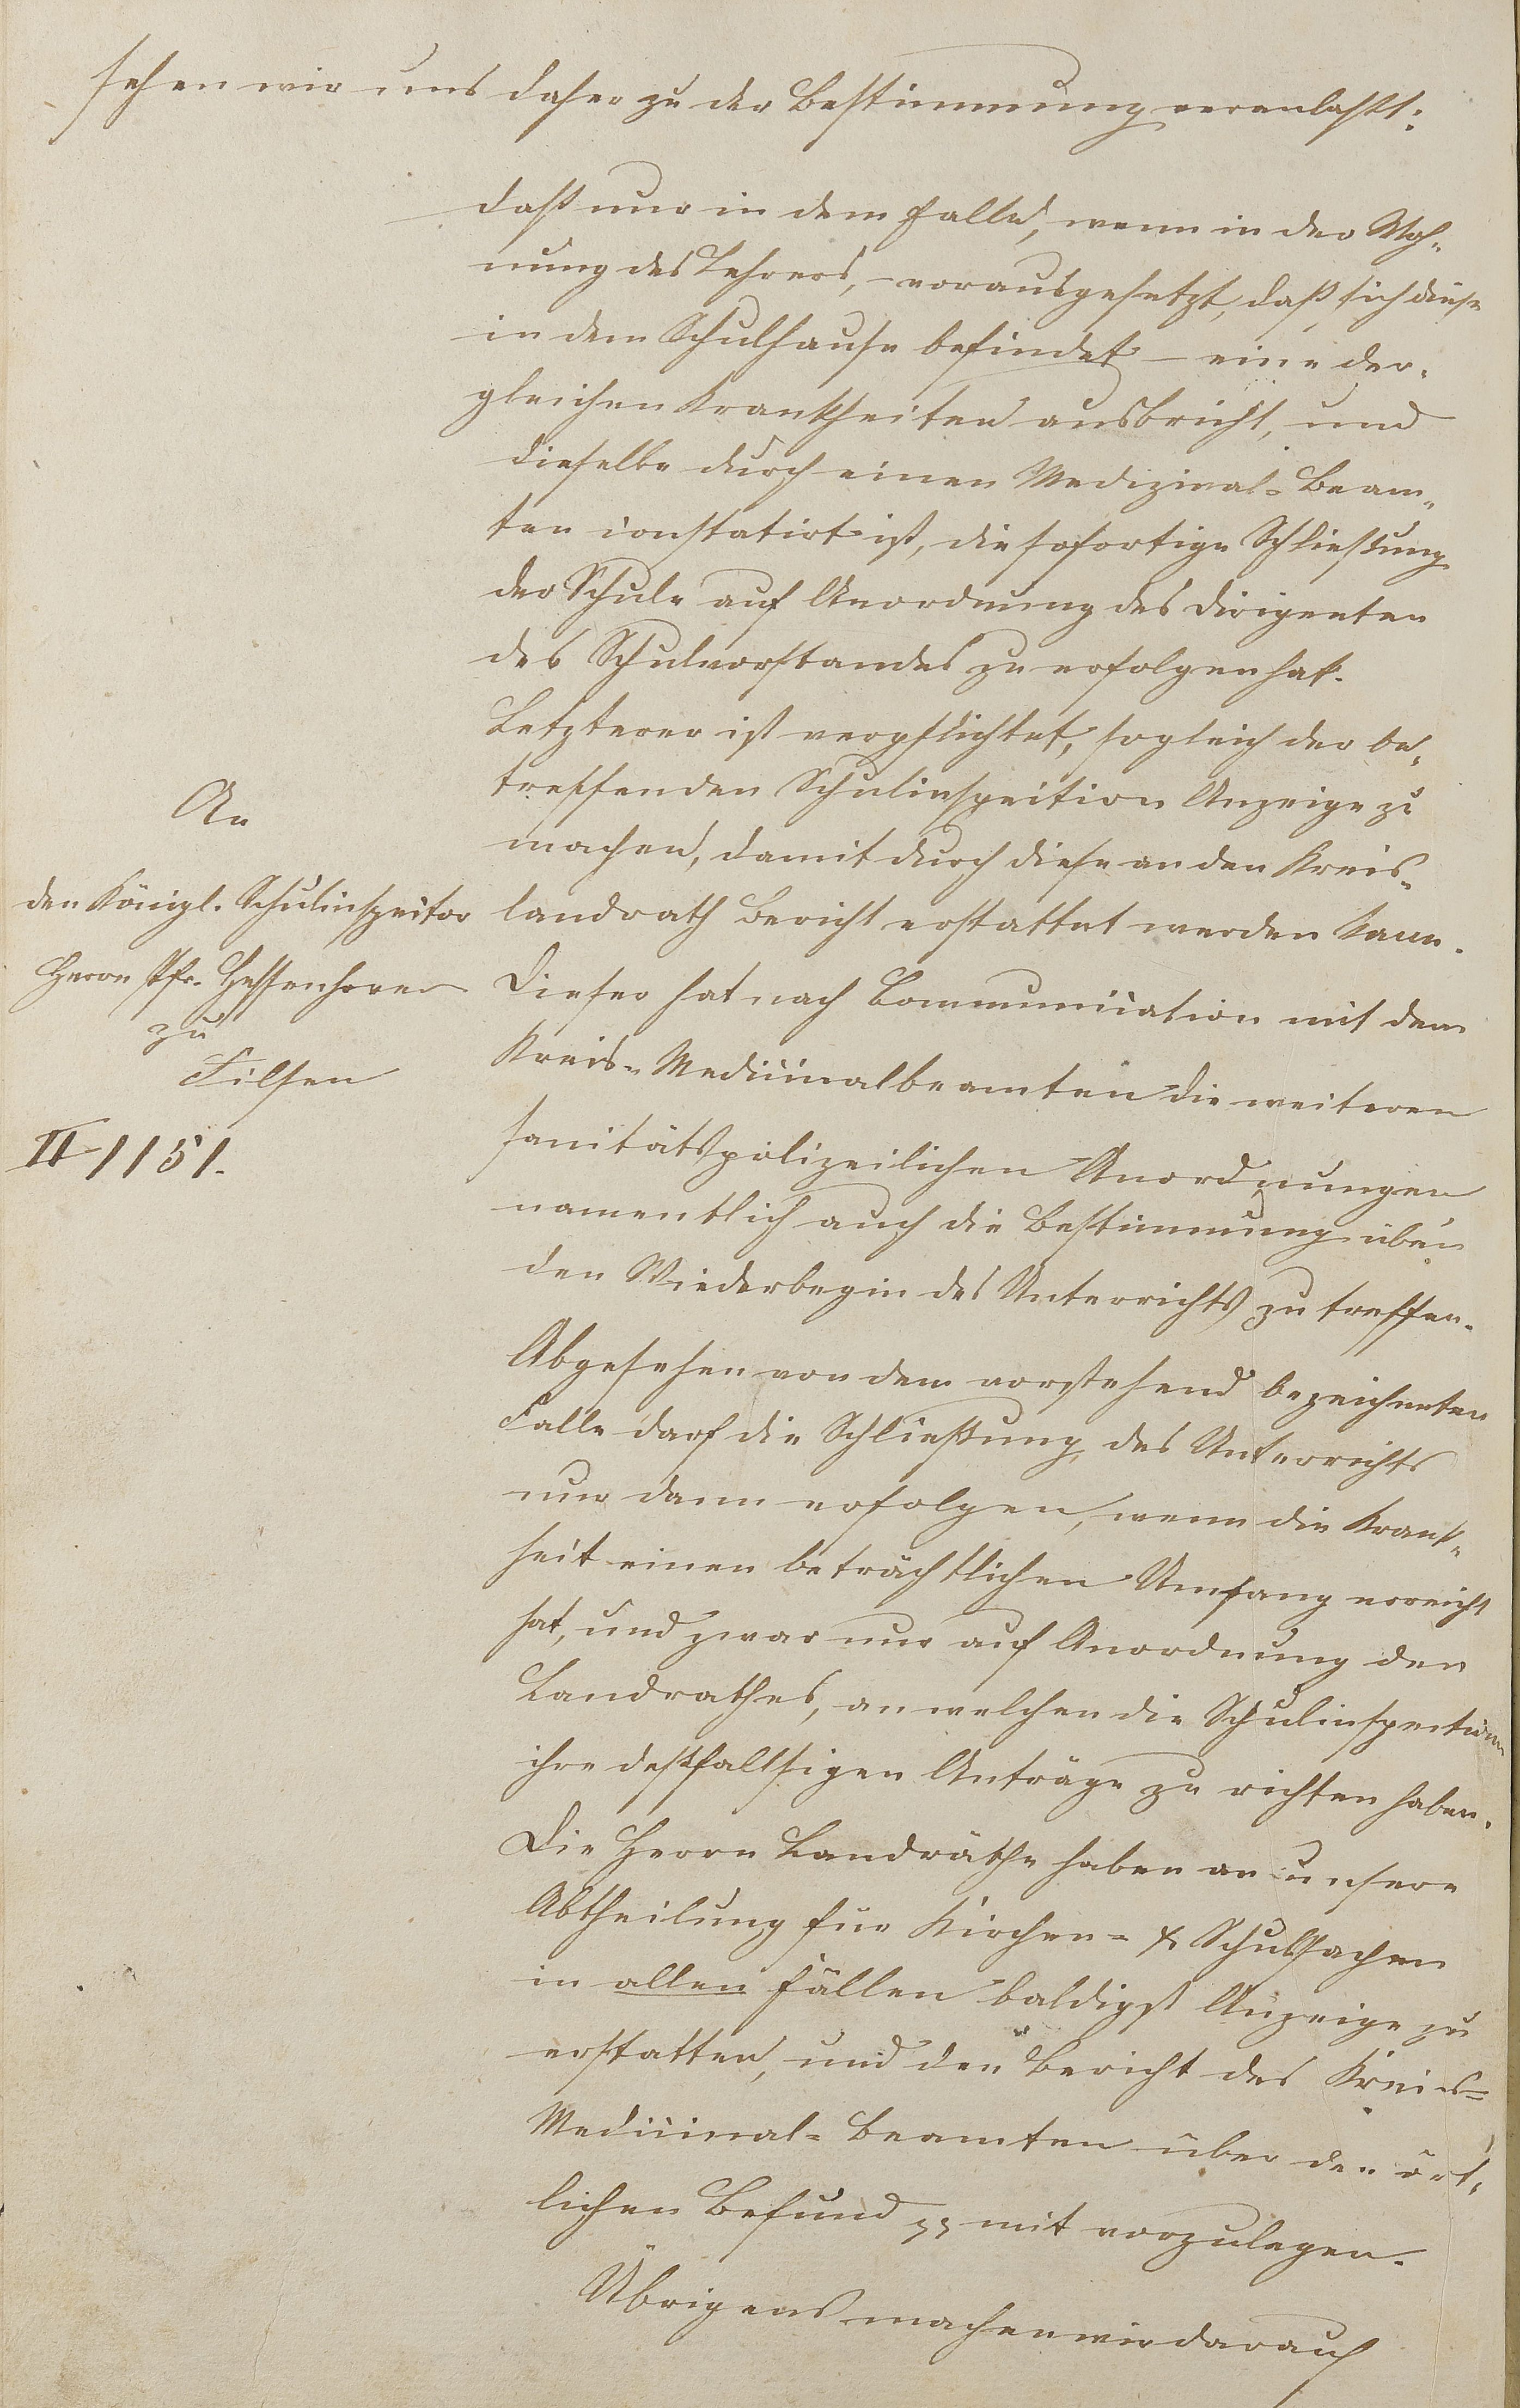 sehen wir uns daher zu der Bestimmung veranlaßt:
daß nur in dem Falle, wenn in der Woh-
nung des Lehrers, – vorausgesetzt, daß sich diese
in dem Schulhause befindet – eine der-
gleichen Krankheiten ausbricht, und
dieselbe durch einen Medizinal-Beam-
ten constatirt ist, die sofortige Schließung
der Schule auf Anordnung des Dirigenten
des Schulvorstandes zu erfolgen hat.
Letzterer ist verpflichtet, sogleich der be-
treffenden Schulinspection Anzeige zu
machen, damit durch diese an den Kreis-
landrath Bericht erstattet werden kann.
Dieser hat nach Communication mit dem
Kreis-Medicinalbeamten die weiteren
sanitätspolizeilichen Anordnungen
namentlich auch die Bestimmung über
den Wiederbegin des Unterrichts zu treffen.
Abgesehen von dem vorstehend bezeichneten
Falle darf die Schließung des Unterrichts
nur dann erfolgen, wenn die Krank-
heit einen beträchtlichen Umfang erreicht
hat, und zwar nur auf Anordnung des
Landrathes, an welchen die Schulinspectionen
ihre desfallsigen Anträge zu richten haben.
Die Herrn Landräthe haben an unsere
Abtheilung für Kirchen- & Schulsachen
in allen Fällen baldigst Anzeige zu
erstatten, und den Bericht des Kreis-
Medicinal-Beamten über den ört-
lichen Befund pp mit vorzulegen.
Übrigens machen wir darauf
An
den Königl. Schulinspector
Herrn Pfr.
zu
Filsen
II 1151.